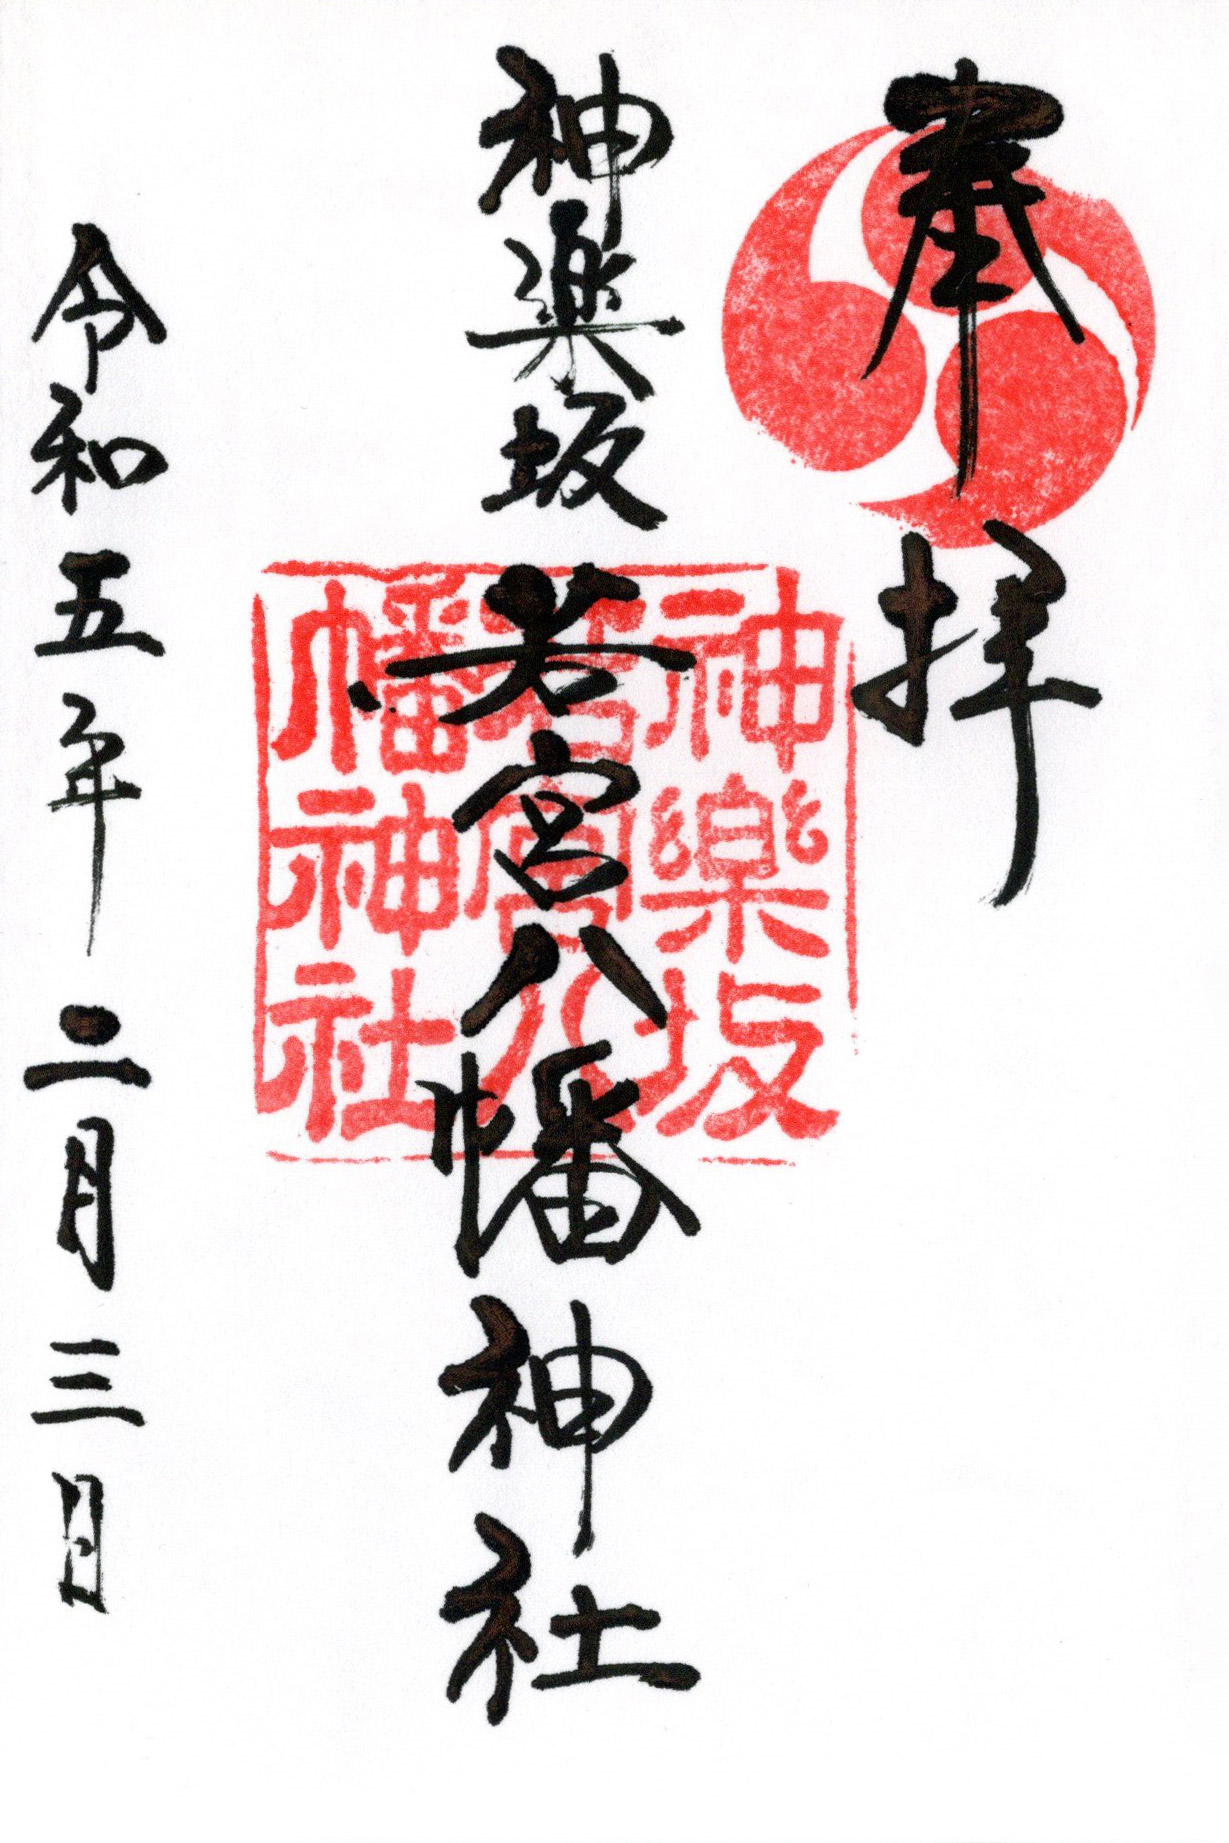 奉拝
神楽坂若宮八幡神社
神樂坂
若宮八
幡神社
令和五年二月三日